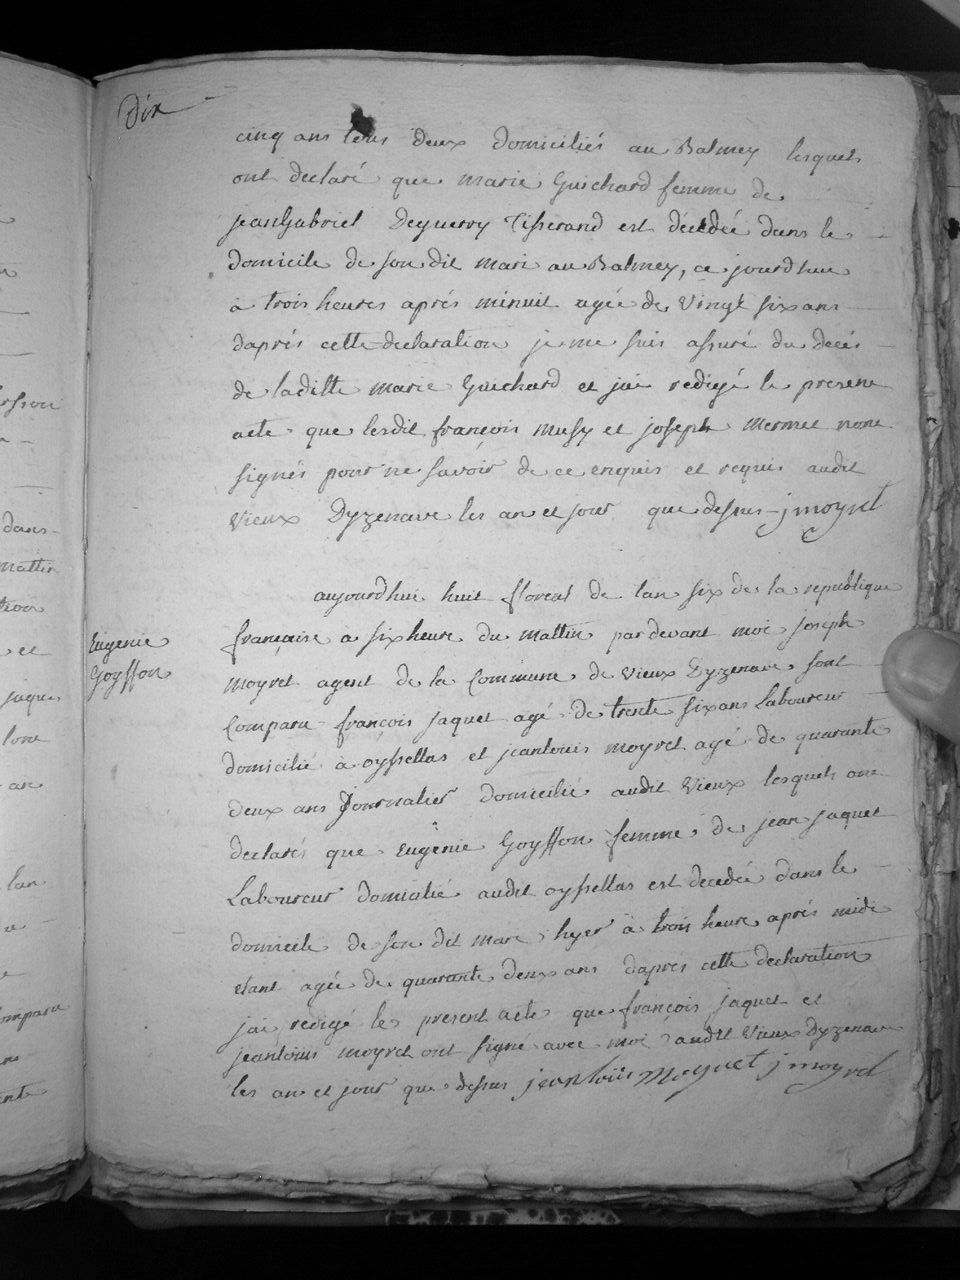 Dix
cinq ans tous deux domiciliés au Balmey lesquels
ont declaré que marie Guichard femme de
jean Gabriel Deguerry Tisserand est décédée dans le
domicile de son dit mari au Balmey, ce jourdhui
à trois heures aprés minuit agée de Vingt six ans
daprés cette declaration je me suis assuré du decés
de laditte marie Guichard et jai redigé le present
acte que lesdit françois musy et joseph mermet nont
signés pour ne savoir de ce enquis et requis audit
Vieux Dyzenave les an et jour que dessus j moyret
aujourdhui huit floreal de lan six de la republique
française à six heure du mattin pardevant moi joseph
moyret agent de la Commune de Vieux Dyzenave sont
Comparu françois jaquet agé de trente six ans Laboureur
domicilié à oyssellas et jeanlouis moyret agé de quarante
deux ans Journalier domicilié audit Vieux lesquels ont
declarés que Eugénie Goyffon femme de jean jaquet
Laboureur domicilié audit oyssellas est decedée dans le
domicile de son dit mari hyer à trois heure aprés midi
etant agée de quarante deux ans daprés cette declaration
jai redigé le present acte que françois jaquet et
jeanlouis moyret ont signé avec moi audit Vieux Dyzenave
les an et jour que dessus jeanlouis Moyret j moyret
Eugenie
Goyffon